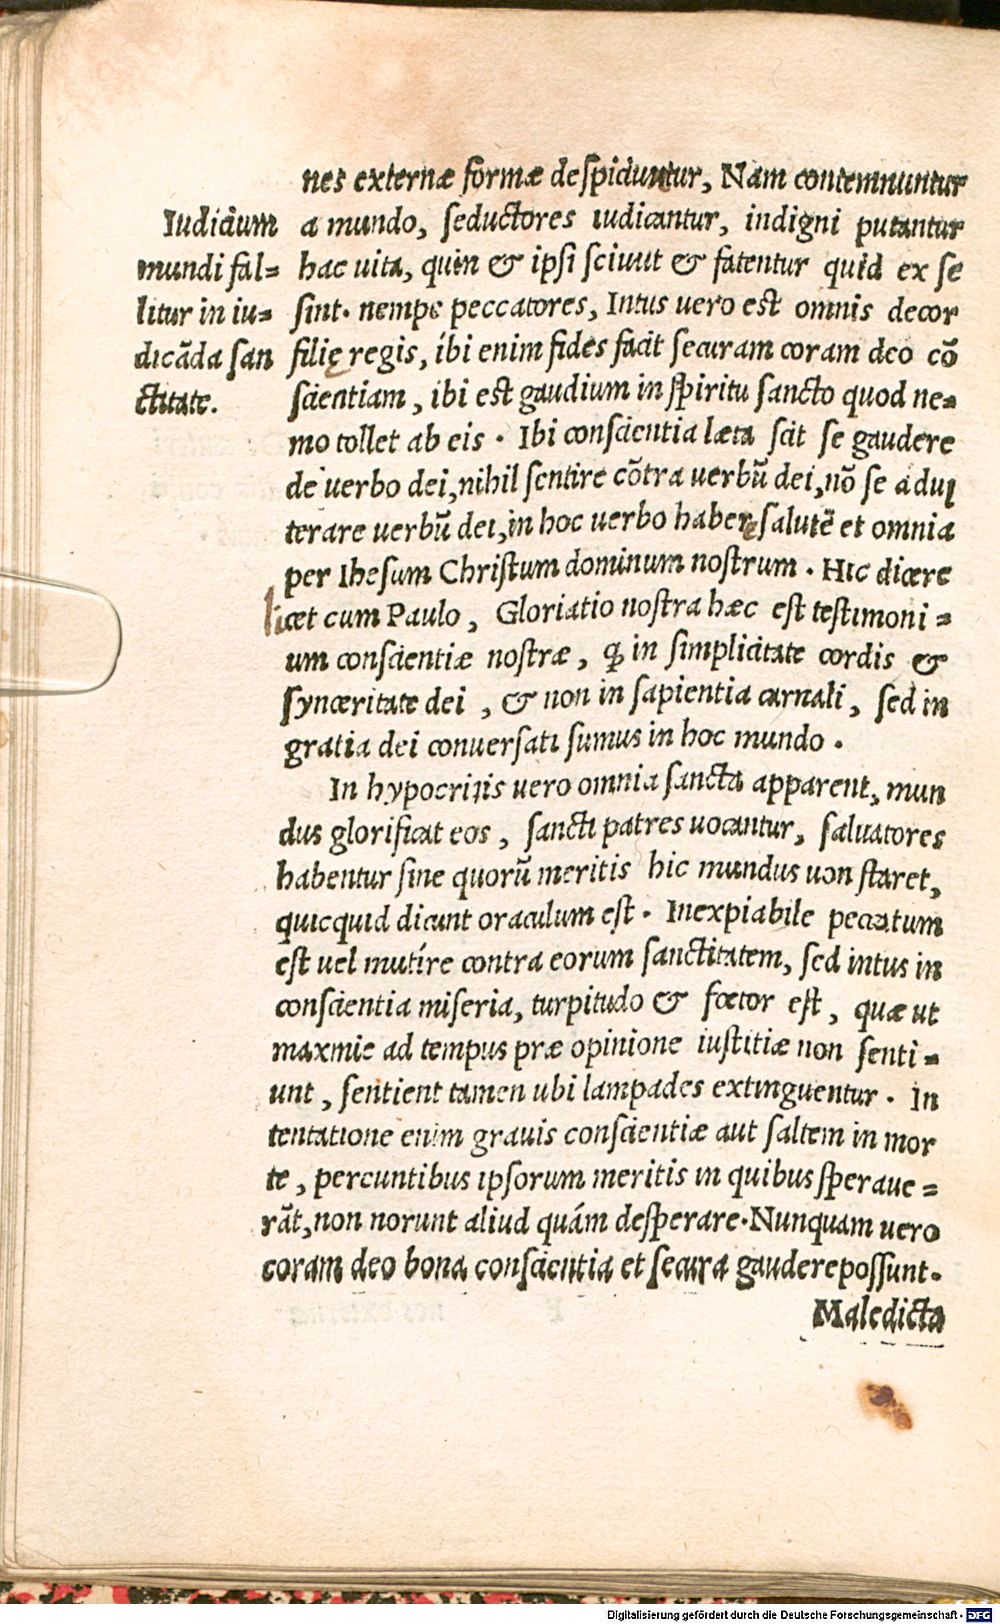 nes externæ formæ despiciuntur, Nam contemnuntur
a mundo, seductores iudicantur, indigni putantur
hac uita, quin & ipsi sciuut & fatentur quid ex se
sint. nempe peccatores, Intus uero est omnis decor
filię regis, ibi enim fides facit securam coram deo cō
scientiam, ibi est gaudium in spiritu sancto quod ne=
mo tollet ab eis. Ibi conscientia læta scit se gaudere
de uerbo dei, nihil sentire cōtra uerbū dei, nō se adul
terare uerbū dei, in hoc uerbo habere salutē et omnia
per Ihesum Christum dominum nostrum. Hic dicere
licet cum Paulo, Gloriatio nostra hæc est testimoni=
um conscientiæ nostræ, ꝙ in simplicitate cordis &
synceritate dei, & non in sapientia carnali, sed in
gratia dei conuersati sumus in hoc mundo.
In hypocritis uero omnia sancta apparent, mun
dus glorificat eos, sancti patres uocantur, saluatores
habentur sine quorū meritis hic mundus uon staret,
quicquid dicunt oraculum est. Inexpiabile peccatum
est uel mutíre contra eorum sanctitatem, sed intus in
conscientia miseria, turpitudo & fœtor est, quæ ut
maxmie ad tempus præ opinione iustitiæ non senti=
unt, sentient tamen ubi lampades extinguentur. In
tentatione enim grauis conscientiæ aut saltem in mor
te, percuntibus ipsorum meritis in quibus speraue=
rāt, non norunt aliud quám desperare. Nunquam uero
coram deo bona conscientia et secura gaudere possunt.
Maledicta
Iudicium
mundi fal=
litur in iu=
dicāda san
ctitate.
Digitalisierung gefördert durch die Deutsche Forschungsgemeinschaft - DFG